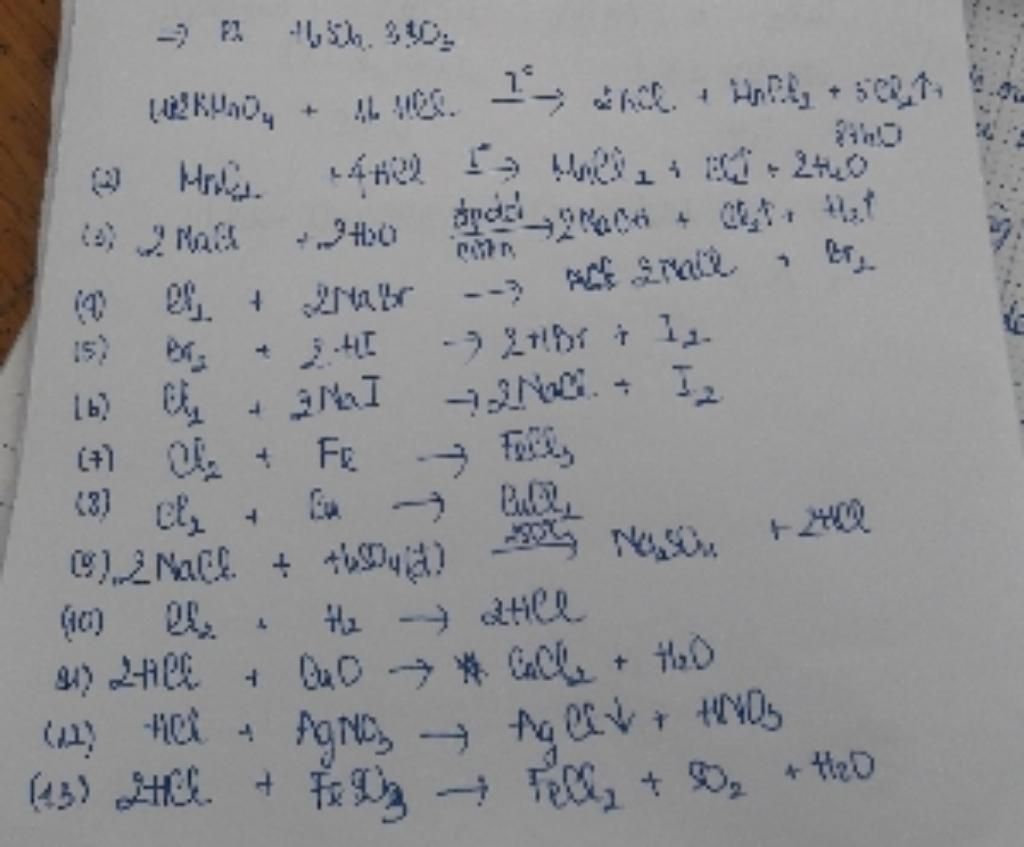 ⇒ H₂SO₄.3SO₃
(1) 2KMnO₄ + 16HCl —T°→ 2KCl + MnCl₂ + 5Cl₂↑ +
8H₂O
(2) MnO₂ + 4HCl —T°→ MnCl₂ + Cl₂↑ + 2H₂O
(3) 2NaCl + 2H₂O —đpdd→ 2NaOH + Cl₂↑ + H₂↑
(4) Cl₂ + 2NaBr --→ 2NaCl + Br₂
(5) Br₂ + 2HI → 2HBr + I₂
(6) Cl₂ + 2NaI → 2NaCl + I₂
(7) Cl₂ + Fe → FeCl₃
(8) Cl₂ + Cu → CuCl₂
(9) 2NaCl + H₂SO₄(đ) —250°C→ Na₂SO₄ + 2HCl
(10) Cl₂ + H₂ → 2HCl
11) 2HCl + CuO → CuCl₂ + H₂O
(12) HCl + AgNO₃ → AgCl↓ + HNO₃
(13) 2HCl + FeSO₃ → FeCl₂ + SO₂ + H₂O